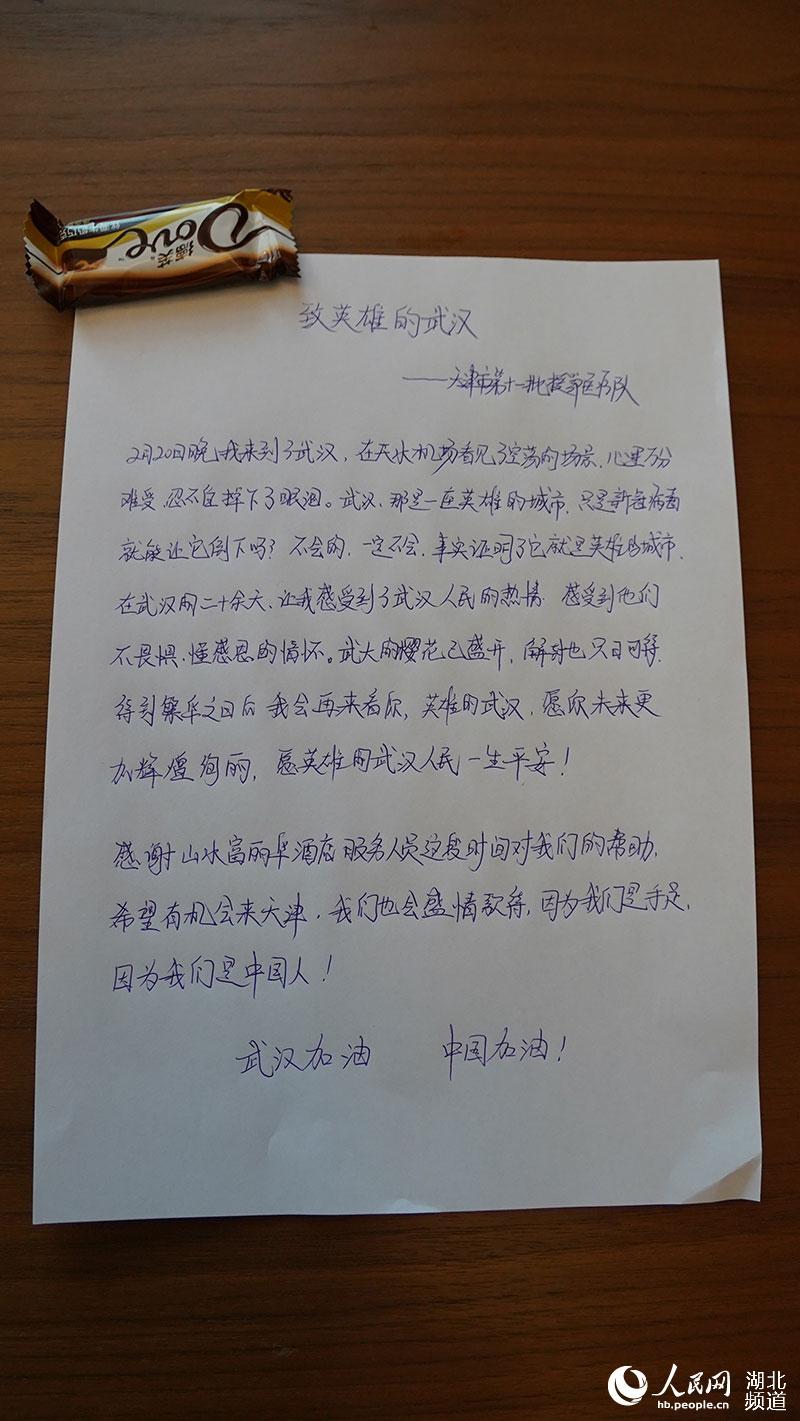 Dove
德芙
致英雄的武汉
——天津市第十一批援鄂医疗队
2月20日晚我来到了武汉，在天水机场看见了空荡的场景，心里万分
难受，忍不住掉下了眼泪。武汉，那是一座英雄的城市，只是新冠病毒
就能让它倒下吗？不会的，一定不会，事实证明了它就是英雄的城市，
在武汉的二十余天，让我感受到了武汉人民的热情 感受到他们
不畏惧、懂感恩的情怀。武大的樱花已盛开，解封也只日可待，
待到繁华之日后 我会再来看你，英雄的武汉，愿你未来更
加辉煌绚丽，愿英雄的武汉人民一生平安！
感谢山水富丽华酒店服务人员这段时间对我们的帮助，
希望有机会来天津，我们也会盛情款待，因为我们是手足，
因为我们是中国人！
武汉加油 中国加油！
人民网 湖北
hb.people.cn 频道